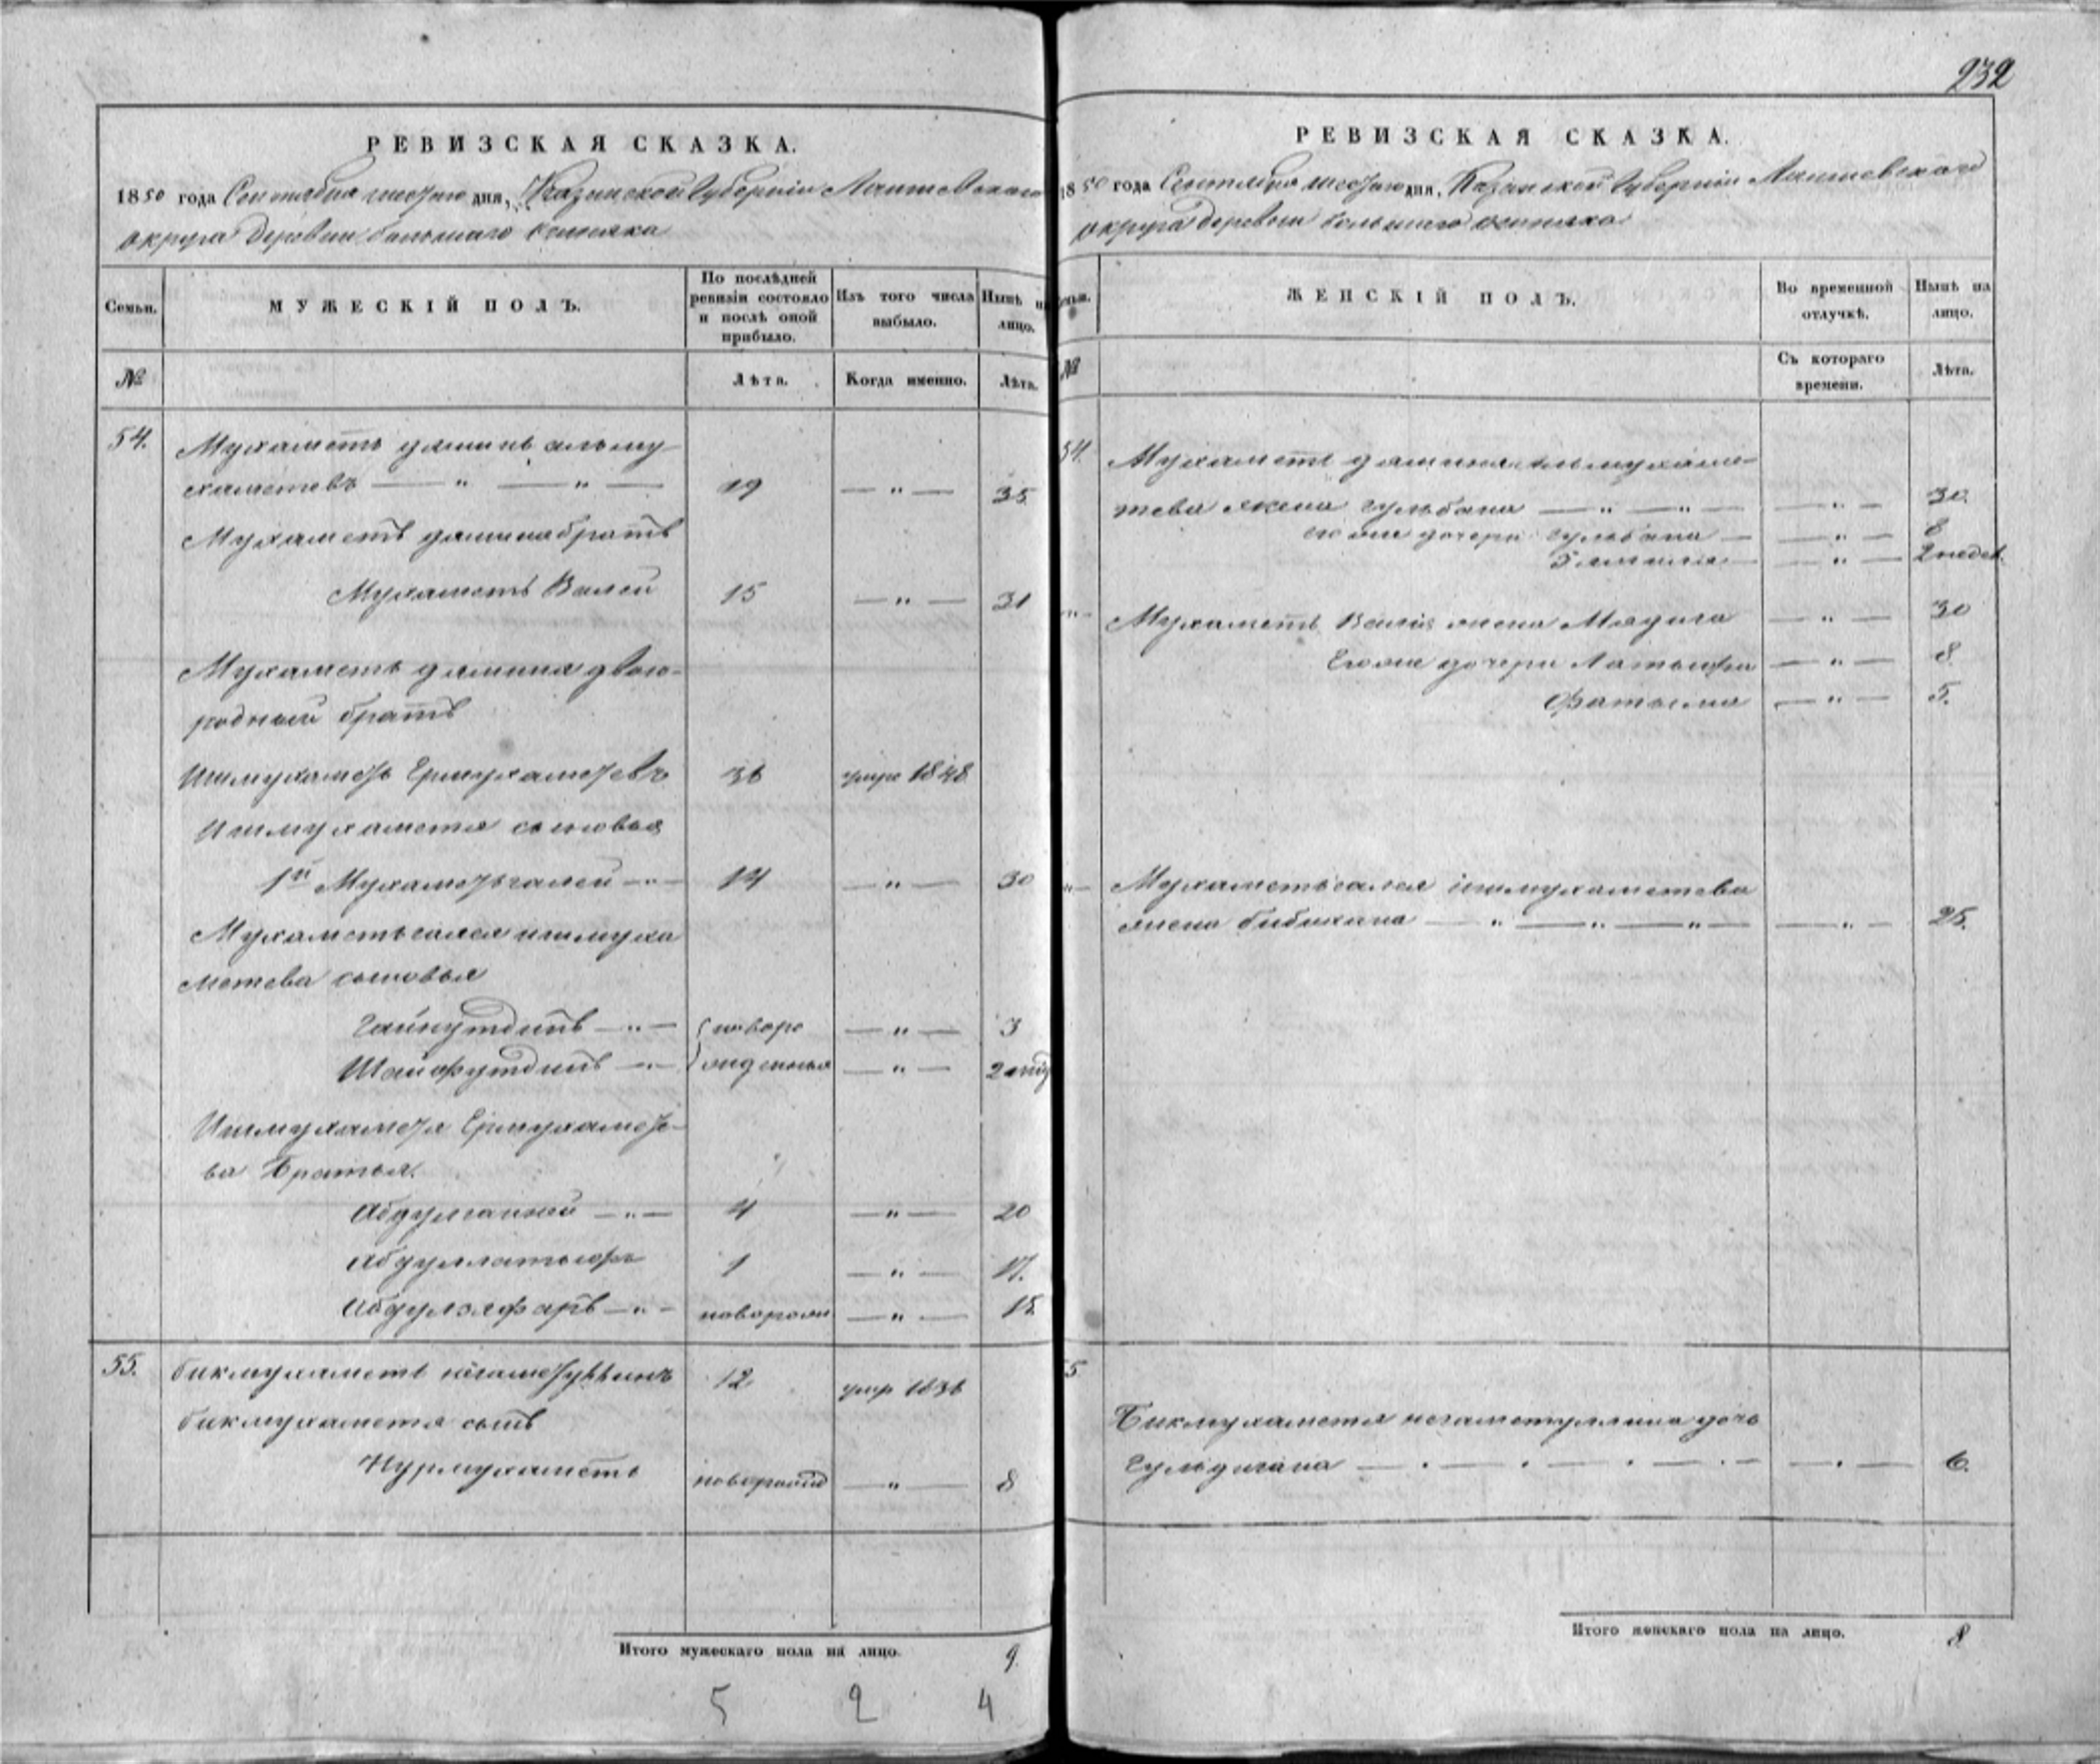 232
РЕВИЗСКАЯ СКАЗКА.
1850 года Сентября шестого дня, Казанской Губернiи Лаишевского
округа деревни большаго
Семьи.
МУЖЕСКIЙ ПОЛЪ.
По послѣдней ревизiи состояло и послѣ оной прибыло.
Изъ того числа выбыло.
Нынѣ на лицо.
№
Лѣта.
Когда именно.
Лѣта.
54.
Мухаметь альму-
хаметевъ — " — " — 19 — " — 35
Мухаметъ братъ
Мухаметь Валей 15 — " — 31
Мухаметь двою-
родный братъ
Ишмухаметь Ермухаметевъ 36 умре 1848
Ишмухаметя сыновья
1й Мухаметьгалей — " — 14 — " — 30
Мухаметьгалея ишмуха
метева сыновья
Гайнутдинъ — " — новоро — " — 3
Шайфутдинъ — " — жденныя — " — 2
Ишмухаметя Ермухамете-
ва Братья.
Абдулганей — " — 4 — " — 20
Абдуллатыфъ 1 — " — 17.
— " — новорож — " — 15
55. бикмухаметь 12 умр 1836
бикмухаметя сынъ
Нурмухаметь новорожд — " — 8
Итого мужескаго пола на лицо. 9.
5 2 4
РЕВИЗСКАЯ СКАЗКА.
1850 года Сентября шестого дня, Казанской Губернiи Лаишевского
округа деревни большаго
Семьи.
ЖЕНСКIЙ ПОЛЪ.
Во временной отлучкѣ.
Нынѣ на лицо.
№
Съ котораго времени.
Лѣта.
54.
Мухаметь альмухаме-
тева жена Гульбана — " — " — — " — 30.
его же дочери Гульбана — — " — 8
— " — 2 недел.
" Мухаметь Валія жена Мядига — " — 30
Его же дочери Латыфа — " — 8
Фатыма — " — 5.
" Мухаметьгалея ишмухаметева
жена бибихана — " — " — " — — " — 25.
55
Бикмухаметя дочь
— . — . — . — . — — . — 6.
Итого женскаго пола на лицо. 8